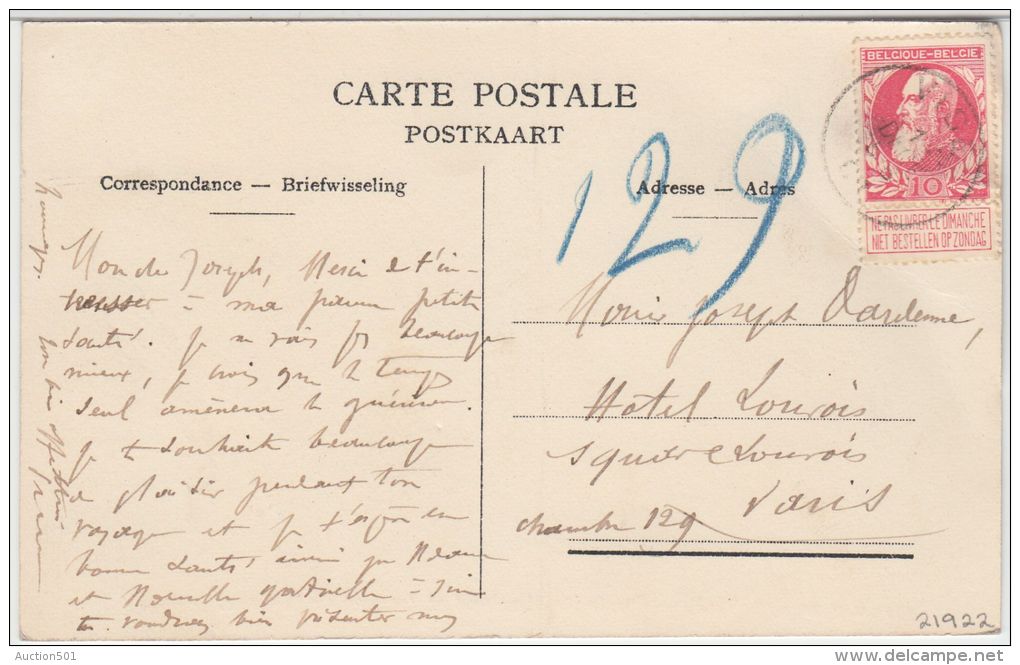 CARTE POSTALE
POSTKAART
Correspondance — Briefwisseling
Adresse — Adres
BELGIQUE-BELGIE
10
NE PAS LIVRER LE DIMANCHE
NIET BESTELLEN OP ZONDAG
129
Mon Joseph, Merci de t'in-
ma petite
santé. Je ne vais pas beaucoup
mieux, je crois que le temps
seul amènera la guérison.
Je te souhaite beaucoup
de plaisir pendant ton
voyage et je t'espère en
bonne santé ainsi que
et
voudras bien présenter mes
Joseph Dardenne,
Hôtel Louvois
Square Louvois
Paris
chambre 129
21922
Auction501